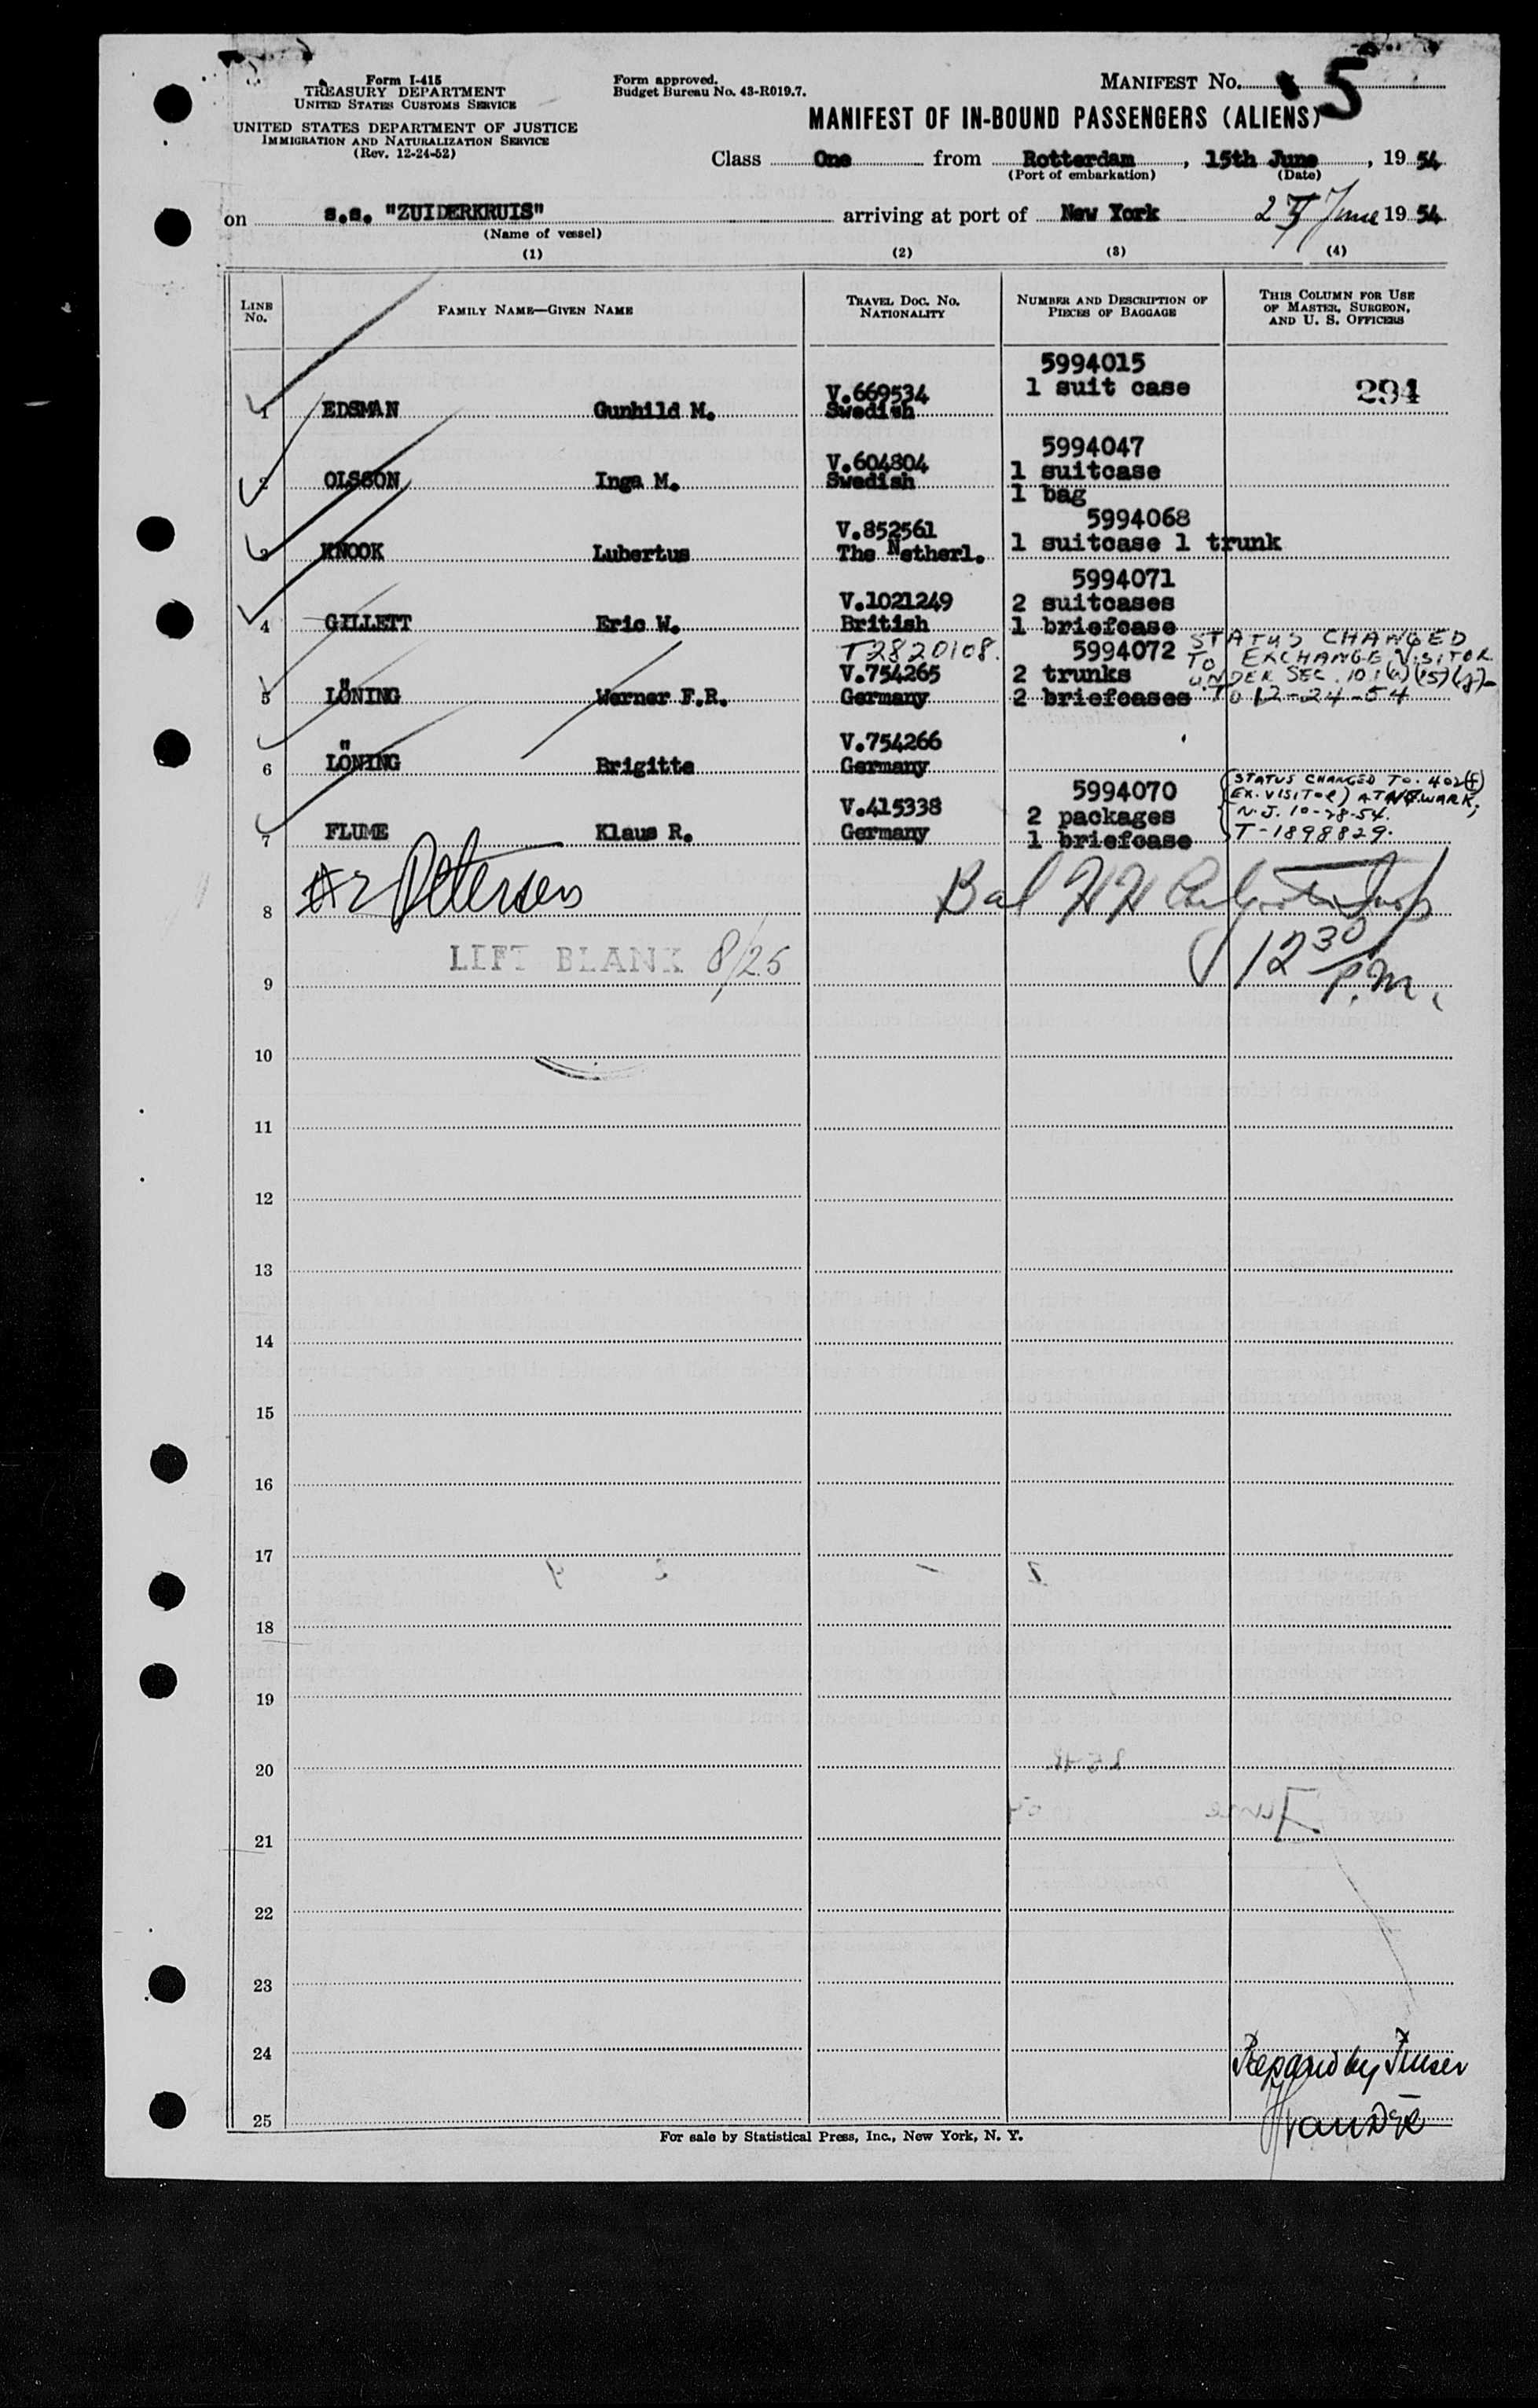 Form I-415
TREASURY DEPARTMENT
UNITED STATES CUSTOMS SERVICE
UNITED STATES DEPARTMENT OF JUSTICE
IMMIGRATION AND NATURALIZATION SERVICE
(Rev. 12-24-52)
Form approved.
Budget Bureau No. 43-R019.7.
MANIFEST No. 5
MANIFEST OF IN-BOUND PASSENGERS (ALIENS)
Class One from Rotterdam, 15th June, 1954
(Port of embarkation) (Date)
on s.s. "ZUIDERKRUIS" arriving at port of New York June 1954
(Name of vessel)
(1) (2) (3) (4)
LINE No. FAMILY NAME—GIVEN NAME TRAVEL DOC. No. NATIONALITY NUMBER AND DESCRIPTION OF PIECES OF BAGGAGE THIS COLUMN FOR USE OF MASTER, SURGEON, AND U. S. OFFICERS
5994015
V.669534 1 suit case 294
1 EDSMAN Gunhild M. Swedish
5994047
V.604804 1 suitcase
2 OLSSON Inga M. Swedish 1 bag
5994068
V.852561 1 suitcase 1 trunk
3 KNOOK Lubertus The Netherl.
5994071
V.1021249 2 suitcases
4 GILLETT Eric W. British 1 briefcase
T2820108. 5994072 STATUS CHANGED
V.754265 2 trunks TO EXCHANGE VISITOR
UNDER SEC. 101(a)(15)(J)-
5 LÖNING Werner F.R. Germany 2 briefcases TO 12-24-54
V.754266
6 LÖNING Brigitte Germany
5994070 (STATUS CHANGED TO. 402(f)
V.415338 2 packages EX. VISITOR) AT NEWARK,
N.J. 10-28-54.
7 FLUME Klaus R. Germany 1 briefcase T-1898829.
8 Petersen Bal
LIFT BLANK 8/25 12 30 P.M.
9
10
11
12
13
14
15
16
17
18
19
20
21
22
23
24
Prepared by
25
For sale by Statistical Press, Inc., New York, N. Y.